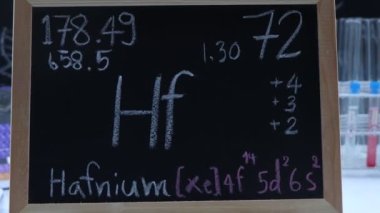 178.49 72
658.5 1.30
Hf
+4
+3
+2
Hafnium [Xe]4f¹⁴ 5d² 6s²